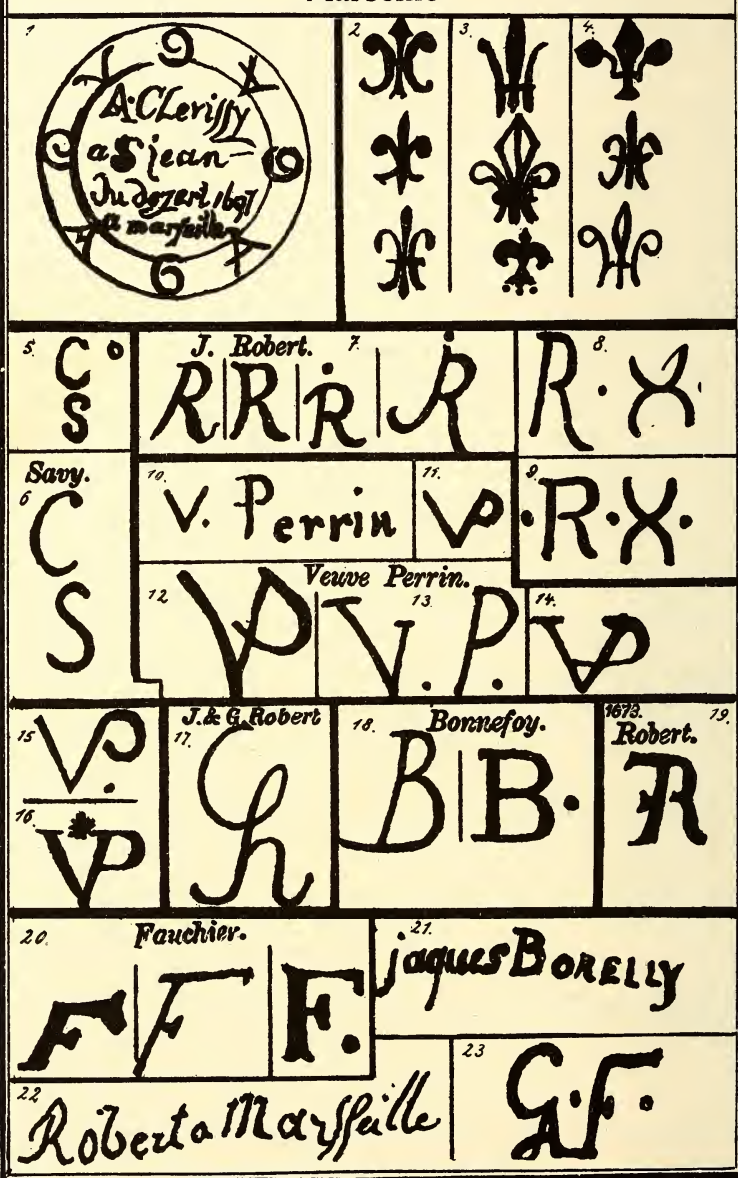 1
A. CLerissy
a S jean
Du dezert 1697
a marseille
2
3.
4.
5.
C
S
J. Robert. 7.
R R R R
8.
R. X
Savy.
6
C
S
10.
V. Perrin
11.
VP
9.
.R.X.
Veuve Perrin.
12
VP
13.
V. P.
14.
VP
15
VP.
16.
VP
J. & G. Robert
17.
Gh
18. Bonnefoy.
B B.
1673. 19.
Robert.
FR
20. Fauchier.
F F F.
21.
jaques BORELLY
22
Roberta Marsseille
23
G.F.